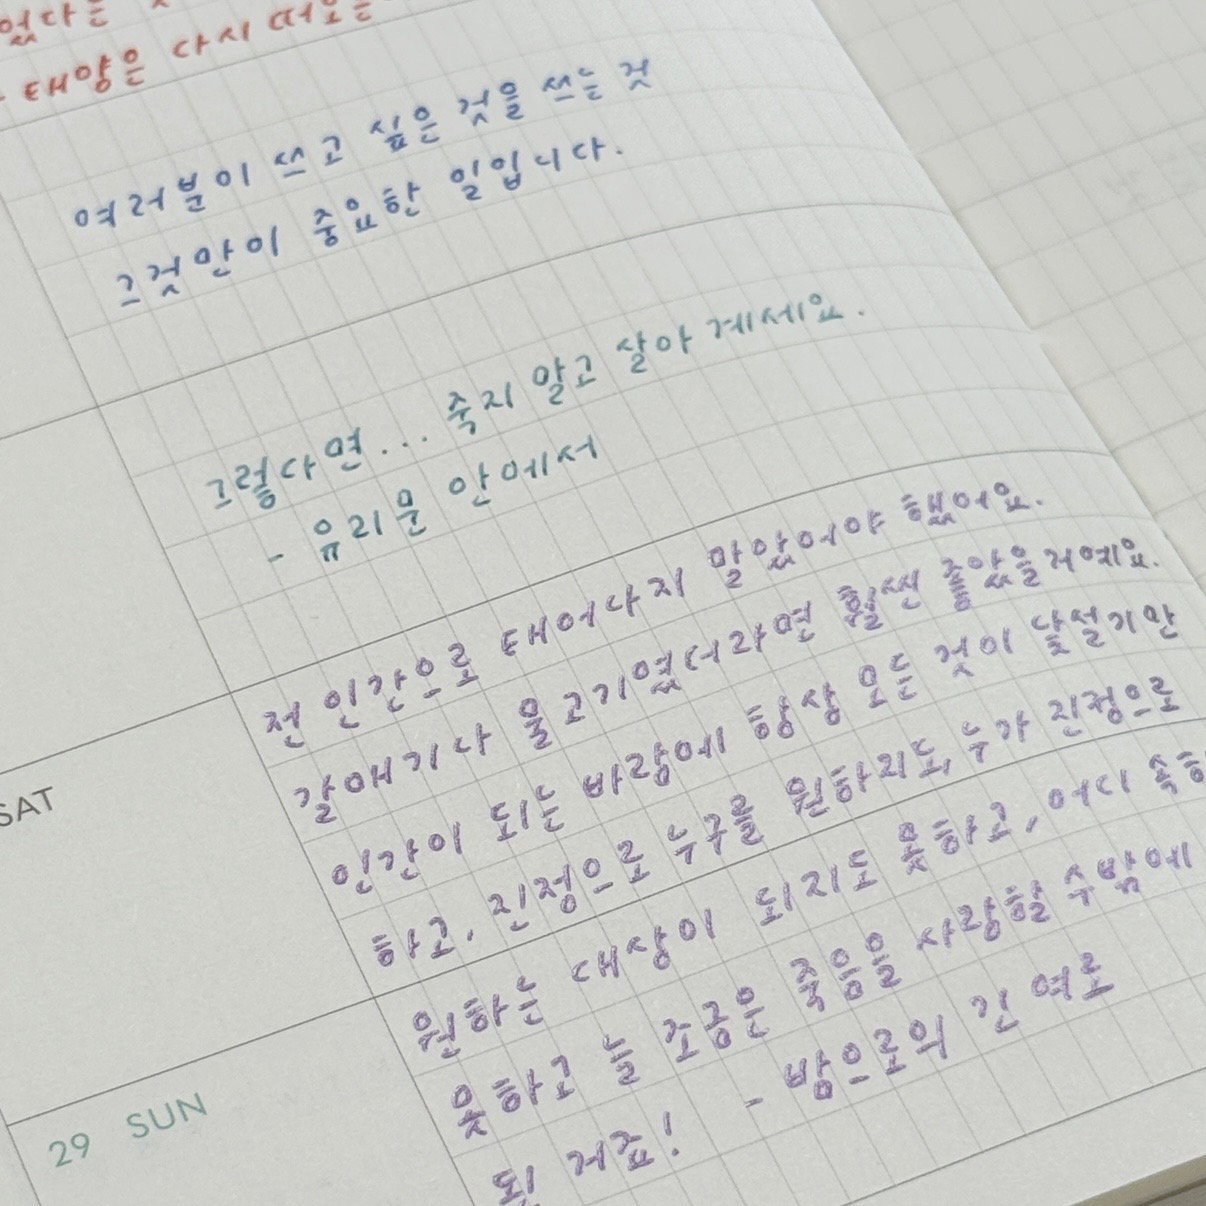 없다는
- 태양은 다시 떠오른
여러분이 쓰고 싶은 것을 쓰는 것
그것만이 중요한 일입니다.
그렇다면... 죽지 말고 살아 계세요.
- 유리문 안에서
전 인간으로 태어나지 말았어야 했어요.
갈매기나 물고기였더라면 훨씬 좋았을거예요.
인간이 되는 바람에 항상 모든 것이 낯설기만
하고, 진정으로 누구를 원하지도, 누가 진정으로
원하는 대상이 되지도 못하고, 어디 속하
못하고 늘 조금은 죽음을 사랑할 수밖에
된 거죠! - 밤으로의 긴 여로
SAT
29 SUN